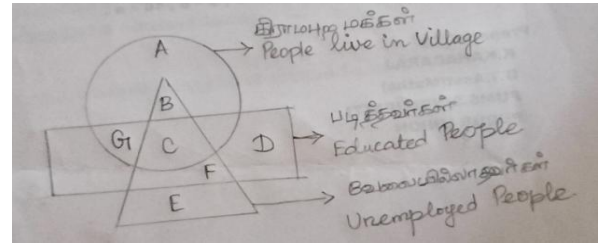 கிராமபுற மக்கள்
A
People live in Village
B
படித்தவர்கள்
G C D
Educated People
F
வேலையில்லாதவர்கள்
E
Unemployed People